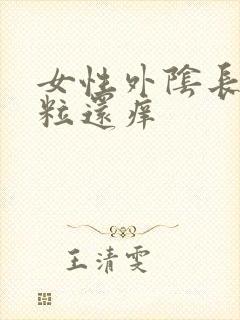 女性外陰長
粒還痒
王清雯